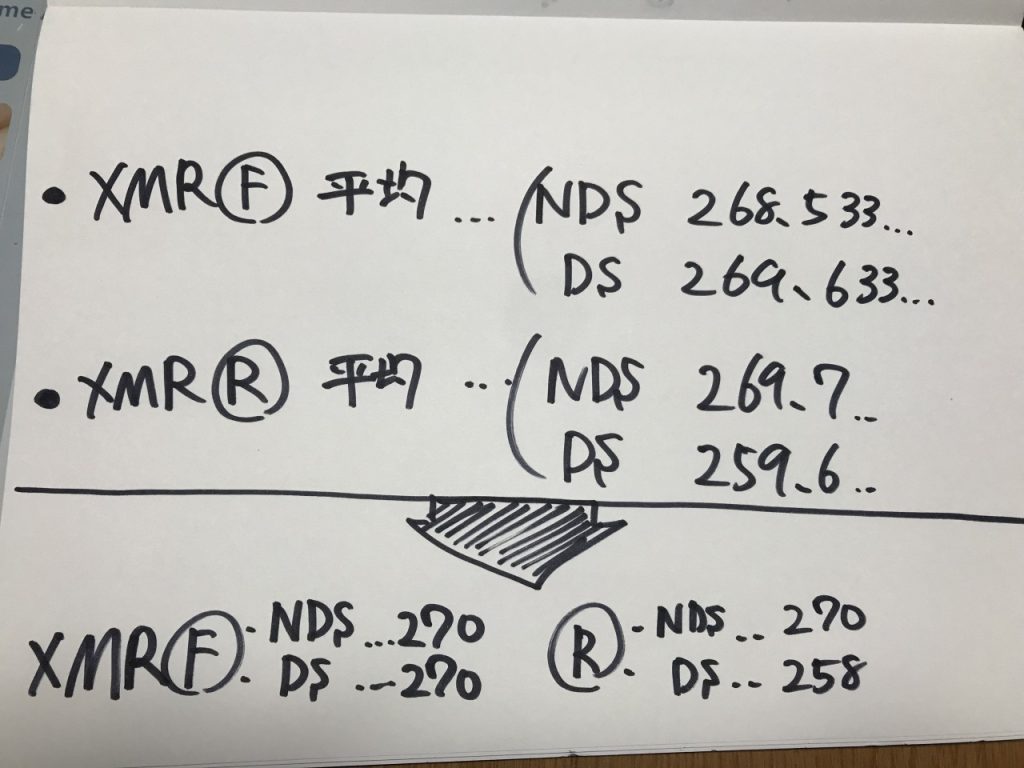 me
• XMRⒻ 平均 ... (NDS 268.533...
DS 269.633...
• XMRⓇ 平均 ... (NDS 269.7..
DS 259.6..
XMRⒻ · NDS ...270
· DS ...270
Ⓡ · NDS .. 270
· DS .. 258